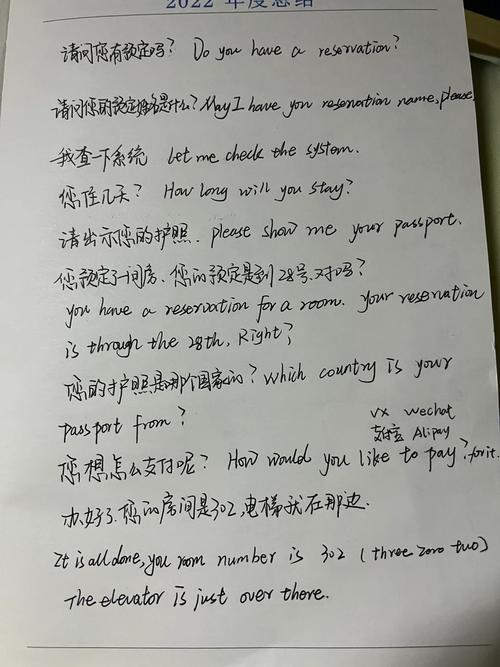 2022 年度总结
请问您有预定吗? Do you have a reservation?
请问您的预定姓名是什么? May I have you reservation name, please
我查一下系统 Let me check the system.
您住几天? How long will you stay?
请出示您的护照. please show me your passport.
您预定了一间房、您的预定是到28号、对吗?
you have a reservation for a room. your reservation
is through the 28th, Right?
您的护照是哪个国家的? Which country is your
passport from?
vx wechat
支付宝 Alipay
您想怎么支付呢? How would you like to pay? for it.
办好了. 您的房间是302, 电梯就在那边.
It is all done, you room number is 302 (three zero two)
The elevator is just over there.